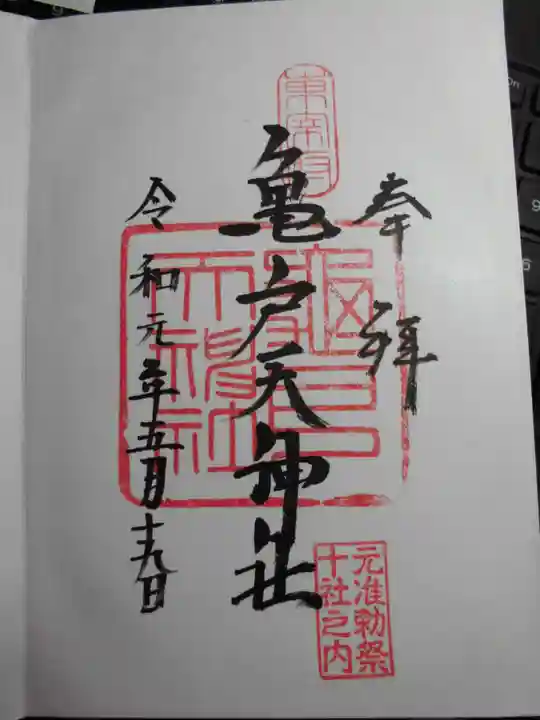 奉拝
東宰府
亀戸天神社
亀戸天神社
元准勅祭
十社之内
令和元年五月十九日